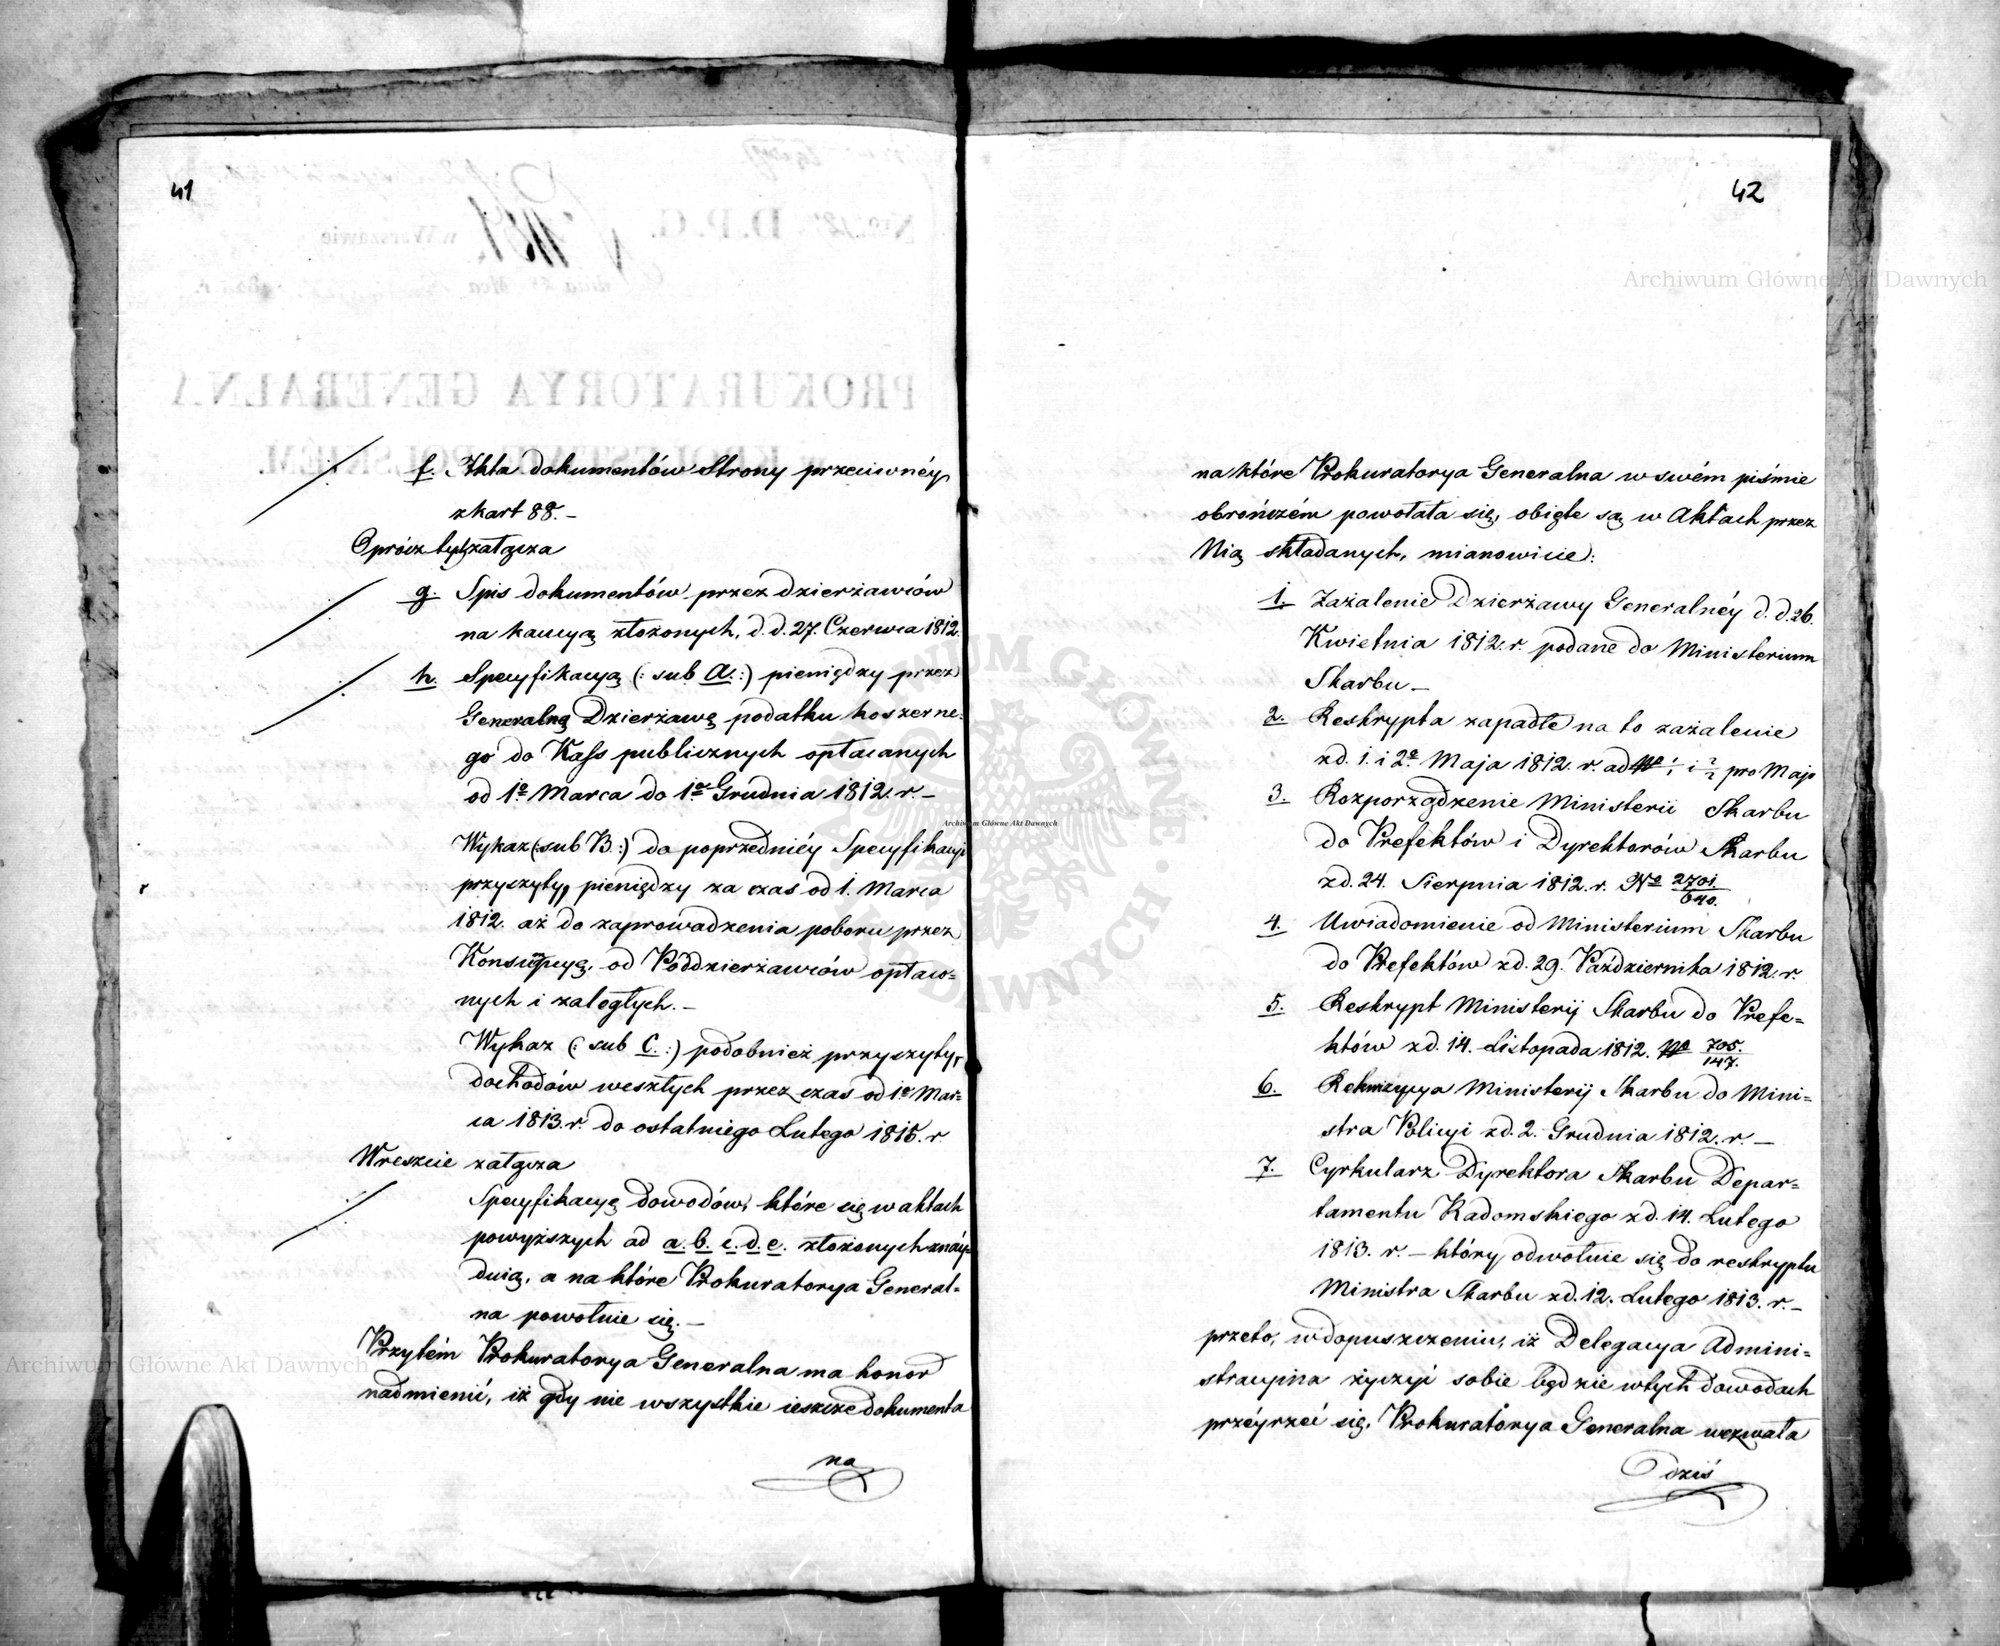 41
f. Akta dokumentów Strony przeciwnéy
z kart 88. –
Oprócz tych załącza
g. Spis dokumentów przez dzierżawców
na kaucyą złożonych, d. d. 27. Czerwca 1812.
h. Specyfikacyą (: sub A. :) pieniędzy przez
Generalną Dzierżawę podatku koszerne-
go do Kass publicznych opłacanych
od 1o Marca do 1o Grudnia 1812. r. –
Wykaz (: sub B :) do poprzedniéy Specyfikacyi
przyszyty, pieniędzy za czas od 1. Marca
1812. aż do zaprowadzenia poboru przez
Konsumpcyą, od Poddzierżawców opłaco-
nych i zaległych. –
Wykaz (: sub C. :) podobnież przyszyty,
dochodów weszłych przez czas od 1o Mar-
ca 1813. r. do ostatniego Lutego 1815. r.
Wreszcie załącza
Specyfikacyą dowodów, które się w aktach
powyższych ad a. b. c. d. e. złożonych znay-
duią, a na które Prokuratorya General-
na powołuie się. –
Przytém Prokuratorya Generalna ma honor
nadmienić, iż gdy nie wszystkie ieszcze dokumenta
na
42
na które Prokuratorya Generalna w swém piśmie
obrończém powołała się, obięte są w Aktach przez
Nią składanych, mianowicie:
1. Zażalenie Dzierżawy Generalnéy d. d. 26.
Kwietnia 1812. r. podane do Ministerium
Skarbu –
2. Reskrypta zapadłe na to zażalenie
zd. 1. i 2o Maja 1812. r. ad No 1/1 i 2/2 pro Majo
3. Rozporządzenie Ministerii Skarbu
do Prefektów i Dyrektorów Skarbu
zd. 24. Sierpnia 1812. r. No 2701./640.
4. Uwiadomienie od Ministerium Skarbu
do Prefektów zd. 29. Października 1812. r.
5. Reskrypt Ministerij Skarbu do Prefe-
któw zd. 14. Listopada 1812. No 705./147.
6. Rekwizycya Ministerij Skarbu do Mini-
stra Policyi zd. 2. Grudnia 1812. r. –
7. Cyrkularz Dyrektora Skarbu Depar-
tamentu Radomskiego zd. 14. Lutego
1813. r. – który odwołuie się do reskryptu
Ministra Skarbu zd. 12. Lutego 1813. r. –
przeto, w dopuszczeniu, iż Delegacya Admini-
stracyina życzyć sobie będzie w tych dowodach
przéyrzeć się, Prokuratorya Generalna wezwała
dziś
Archiwum Główne Akt Dawnych
Archiwum Główne Akt Dawnych
Archiwum Główne Akt Dawnych
ARCHIWUM GŁÓWNE AKT DAWNYCH